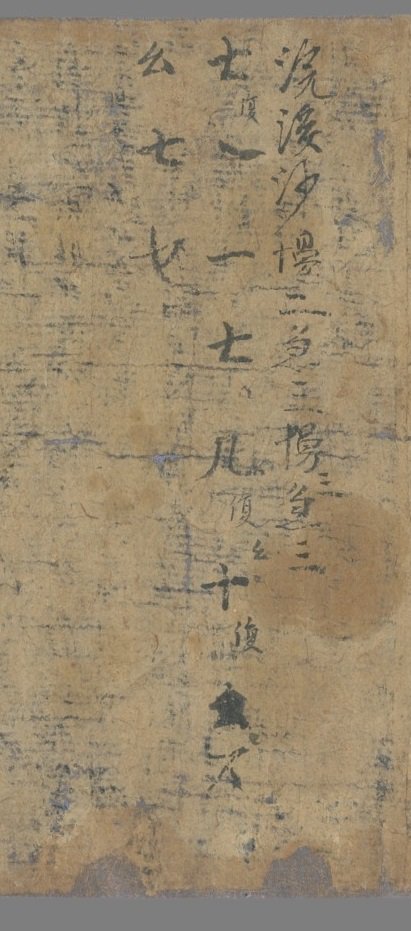 浣溪沙慢二急三慢三急三
七復乀一七凡復ム十復
ム七七